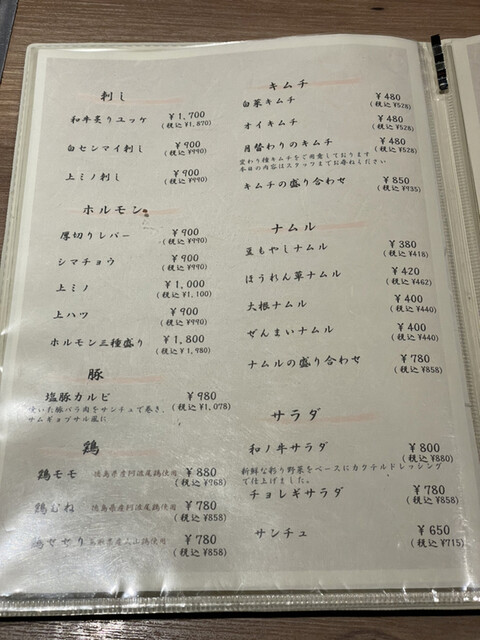 刺し
和牛炙りユッケ ¥1,700
(税込 ¥1,870)
白センマイ刺し ¥900
(税込 ¥990)
上ミノ刺し ¥900
(税込 ¥990)
ホルモン
厚切りレバー ¥900
(税込 ¥990)
シマチョウ ¥900
(税込 ¥990)
上ミノ ¥1,000
(税込 ¥1,100)
上ハツ ¥900
(税込 ¥990)
ホルモン三種盛り ¥1,800
(税込 ¥1,980)
豚
塩豚カルビ ¥980
(税込 ¥1,078)
焼いた豚バラ肉をサンチュで巻き、
サムギョプサル風に
鶏
鶏モモ 徳島県産阿波尾鶏使用 ¥880
(税込 ¥968)
鶏むね 徳島県産阿波尾鶏使用 ¥780
(税込 ¥858)
鶏セセリ 鶏使用 ¥780
(税込 ¥858)
キムチ
白菜キムチ ¥480
(税込 ¥528)
オイキムチ ¥480
(税込 ¥528)
月替わりのキムチ ¥480
(税込 ¥528)
変わり種キムチをご用意しております
本日の内容はスタッフまでお尋ねください
キムチの盛り合わせ ¥850
(税込 ¥935)
ナムル
豆もやしナムル ¥380
(税込 ¥418)
ほうれん草ナムル ¥420
(税込 ¥462)
大根ナムル ¥400
(税込 ¥440)
ぜんまいナムル ¥400
(税込 ¥440)
ナムルの盛り合わせ ¥780
(税込 ¥858)
サラダ
和ノ牛サラダ ¥800
(税込 ¥880)
新鮮な彩り野菜をベースにカクテルドレッシング
で仕上げました。
チョレギサラダ ¥780
(税込 ¥858)
サンチュ ¥650
(税込 ¥715)